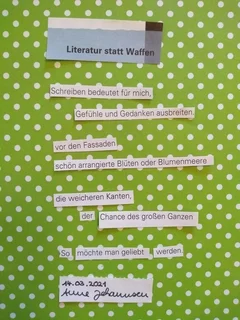 Literatur statt Waffen
Schreiben bedeutet für mich,
Gefühle und Gedanken ausbreiten.
vor den Fassaden
schön arrangierte Blüten oder Blumenmeere
die weicheren Kanten,
der Chance des großen Ganzen
So möchte man geliebt werden.
14.03.2021
Anne Johannsen